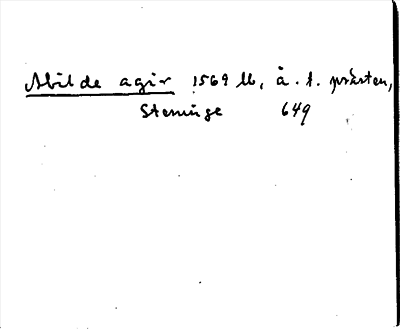 Abilde agir 1569 lb, å. 1. prästen,
Steninge 649